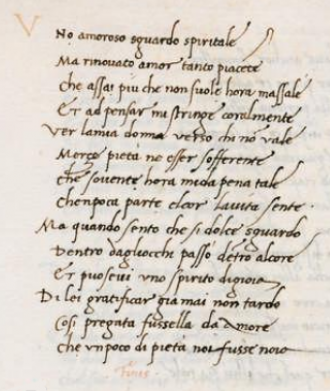 V
No amoroso sguardo spiritale
Ma rinovato amor tanto piacete
Che assai piu che non suole hora massale
Et ad pensar mi stringe coralmente
Ver la mia donna verso chi nō vale
Merce pieta ne esser sofferente
Che sovente hora mi da pena tale
Chen poca parte el cor la vita sente.
Ma quando sento che si dolce sguardo
Dentro dagliocchi passo dētro alcore
Et puosevi uno spirito digioia
Di lei gratificar gia mai non tardo
Cosi pregata fussella da Amore
Che un poco di pieta noi fusse noio
Finis.